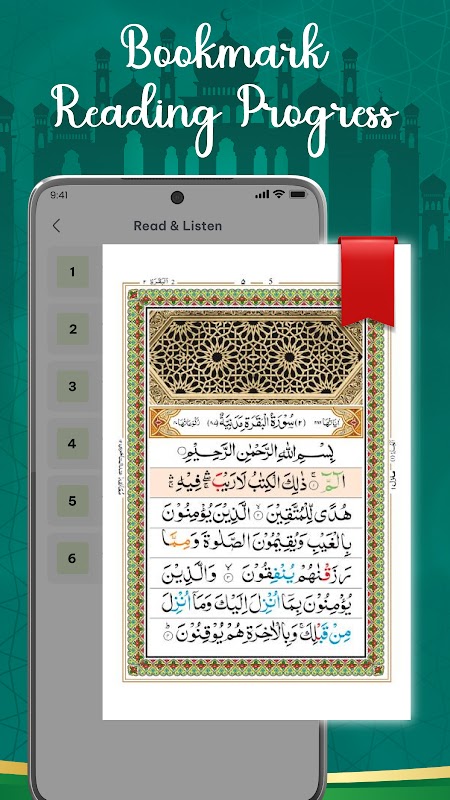 Bookmark
Reading Progress
9:41
Read & Listen
1
2
3
4
5
6
البقرة ٢
٥
5
سُوْرَةُ الْبَقَرَةِ مَدَنِيَّةٌ
بِسْمِ اللهِ الرَّحْمٰنِ الرَّحِيْمِ
الٓمّٓ ۚ ذٰلِكَ الْكِتٰبُ لَا رَيْبَ ۛ فِيْهِ ۛ
هُدًى لِّلْمُتَّقِيْنَ ۙ الَّذِيْنَ يُؤْمِنُوْنَ
بِالْغَيْبِ وَيُقِيْمُوْنَ الصَّلٰوةَ وَمِمَّا
رَزَقْنٰهُمْ يُنْفِقُوْنَ ۙ وَالَّذِيْنَ
يُؤْمِنُوْنَ بِمَآ اُنْزِلَ اِلَيْكَ وَمَآ اُنْزِلَ
مِنْ قَبْلِكَ ۚ وَبِالْاٰخِرَةِ هُمْ يُوْقِنُوْنَ ؕ